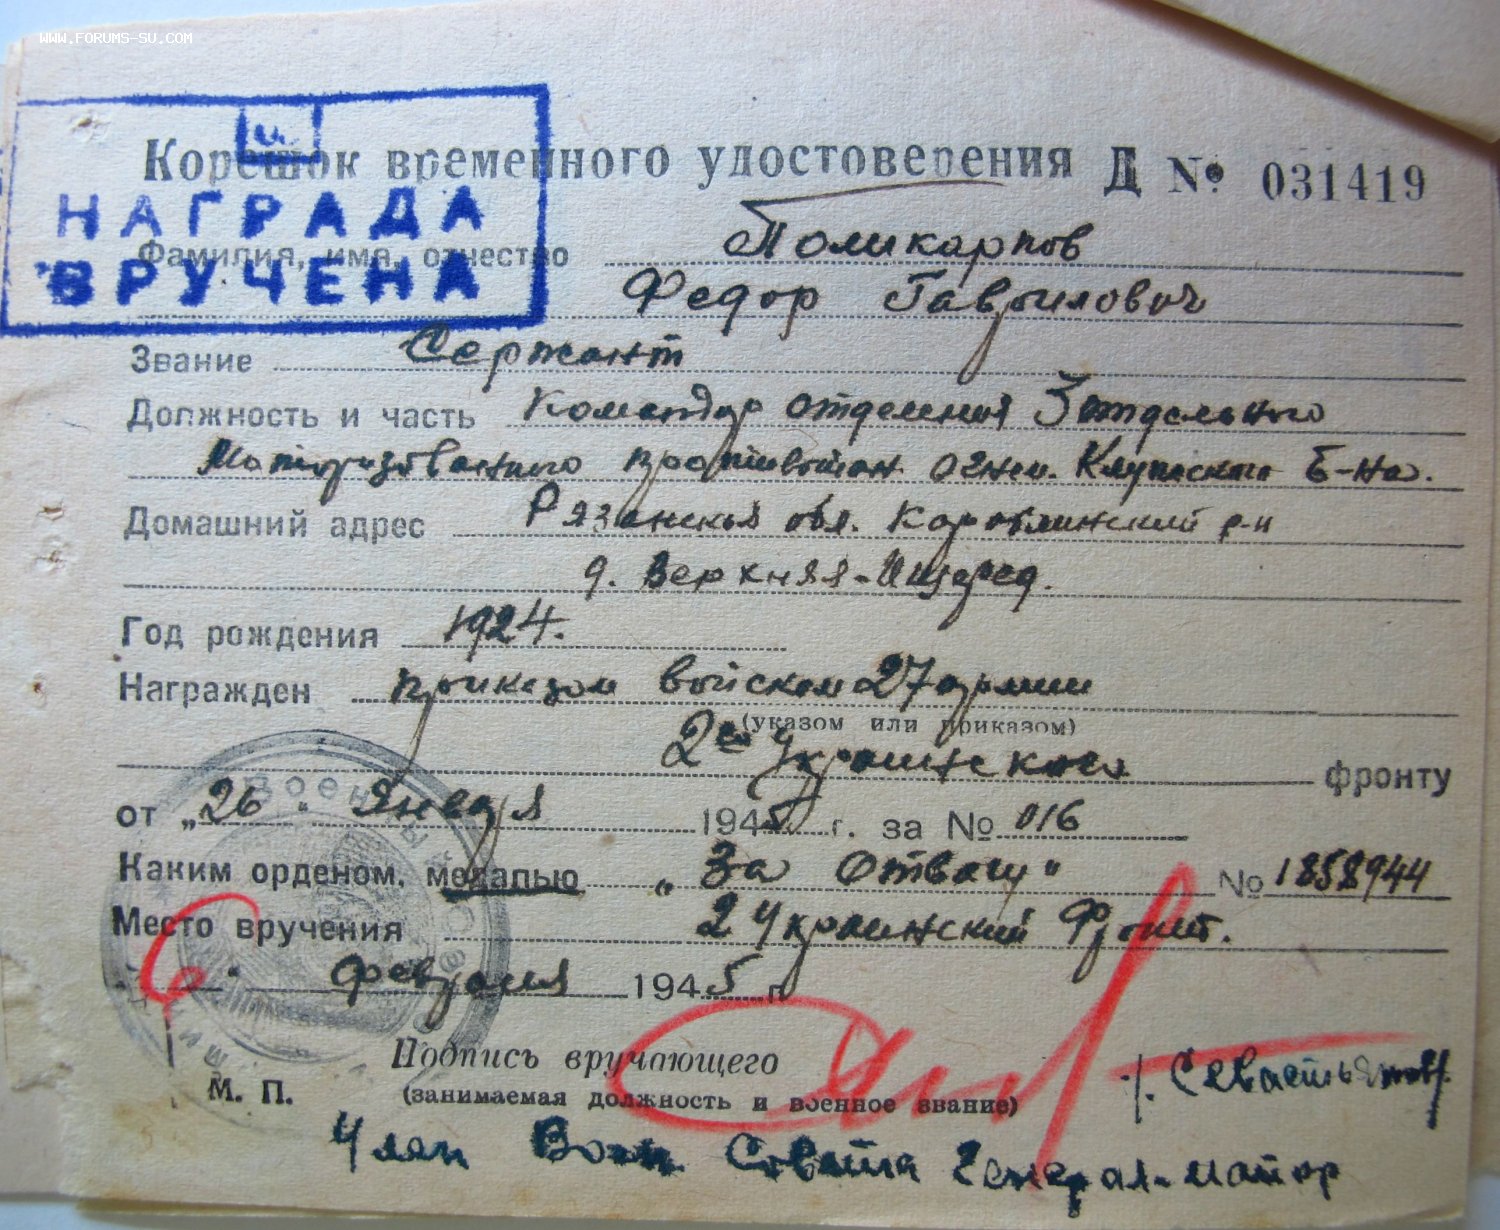 WWW.FORUMS-SU.COM
Корешок временного удостоверения Д № 031419
НАГРАДА
ВРУЧЕНА
Фамилия, имя, отчество Поликарпов
Федор Гаврилович
Звание Сержант
Должность и часть Командир отделения 3 отдельного
Моторизованного противотан. огнем. Б-на.
Домашний адрес Рязанская обл. Кораблинский р-н
д. Верхняя-Ищеред.
Год рождения 1924.
Награжден приказом войскам 27 армии
(указом или приказом)
2го Украинского фронту
от „26" Января 1945 г. за № 016
Каким орденом, медалью „За Отвагу" № 1858944
Место вручения 2 Украинский Фронт.
6" февраля 1945 г.
Подпись вручающего
/. Севастьянов/.
М. П. (занимаемая должность и военное звание)
Член Воен. Совета Генерал-майор